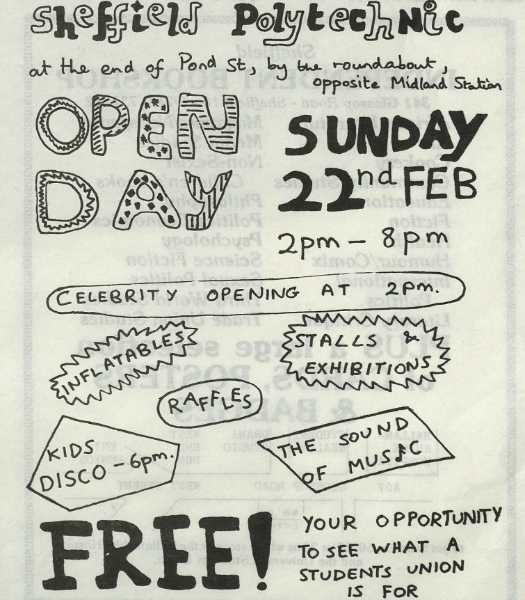 Sheffield Polytechnic
at the end of Pond St, by the roundabout,
opposite Midland Station
OPEN
DAY
SUNDAY
22nd FEB
2pm - 8pm
CELEBRITY OPENING AT 2pm.
INFLATABLES
STALLS &
EXHIBITIONS
RAFFLES
KIDS
DISCO - 6pm.
THE SOUND
OF MUSIC
FREE!
YOUR OPPORTUNITY
TO SEE WHAT A
STUDENTS UNION
IS FOR